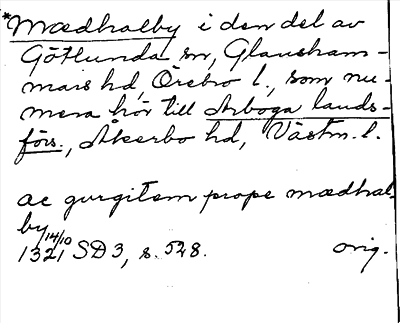 *Mædhalby i den del av
Götlunda sn, Glansham-
mars hd, Örebro l., som nu-
mera hör till Arboga lands-
förs., Åkerbo hd, Västm. l.
ac gurgitem prope mædhal-
by
14/10
1321 SD 3, s. 548. orig.